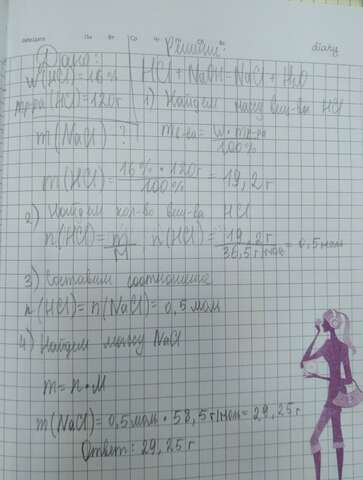 Пн Вт Ср Чт Пт Сб Вс
diary
Дано:
Решение:
w(HCl) = 16%
mр-ра(HCl) = 120г
m(NaCl) - ?
HCl + NaOH = NaCl + H₂O
1) Найдем массу вещ-ва HCl
mв-ва = w · mр-ра / 100%
m(HCl) = 16% · 120г / 100% = 19,2г
2) Найдем кол-во вещ-ва HCl
n(HCl) = m / M n(HCl) = 19,2г / 36,5г/моль = 0,5моль
3) Составим соотношение
n(HCl) = n(NaCl) = 0,5 моль
4) Найдем массу NaCl
m = n · M
m(NaCl) = 0,5моль · 58,5г/моль = 29,25г
Ответ: 29,25г